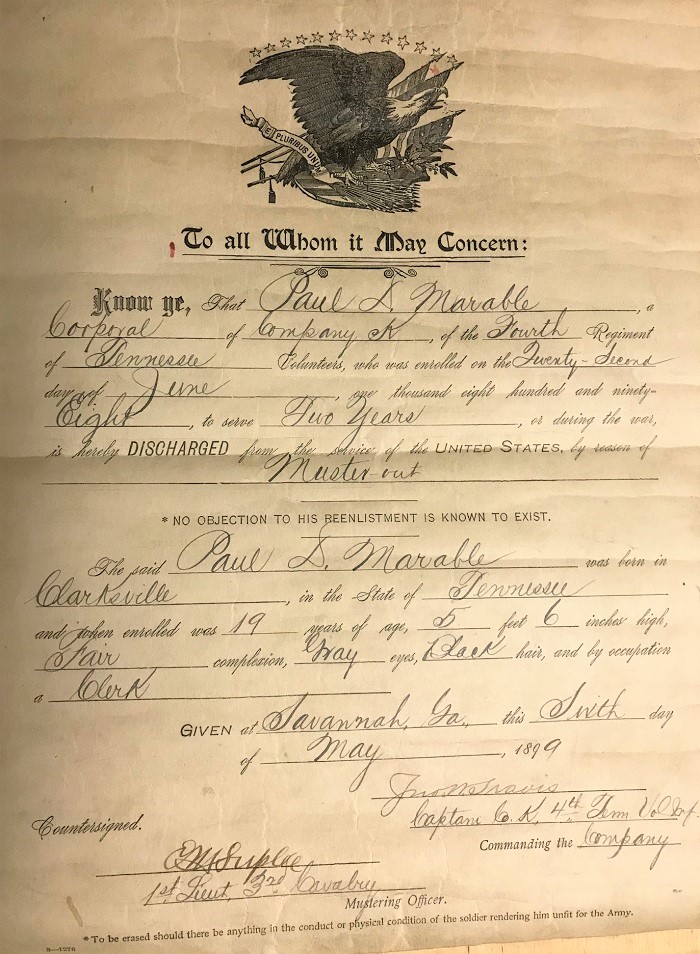 E PLURIBUS UNUM
To all Whom it May Concern:
Know ye, That Paul D. Marable, a
Corporal of Company K, of the Fourth Regiment
of Tennessee Volunteers, who was enrolled on the Twenty-Second
day of June, one thousand eight hundred and ninety-
Eight, to serve Two Years, or during the war,
is hereby DISCHARGED from the service of the UNITED STATES, by reason of
Muster-out
* NO OBJECTION TO HIS REENLISTMENT IS KNOWN TO EXIST.
The said Paul D. Marable was born in
Clarksville, in the State of Tennessee
and when enrolled was 19 years of age, 5 feet 6 inches high,
Fair complexion, Gray eyes, Black hair, and by occupation
a Clerk
GIVEN at Savannah, Ga., this Sixth day
of May, 1899
Jno. W. Travis
Captain Co. K, 4th Tenn Vol Inf.
Countersigned.
Commanding the Company
1st Lieut, 3rd Cavalry
Mustering Officer.
* To be erased should there be anything in the conduct or physical condition of the soldier rendering him unfit for the Army.